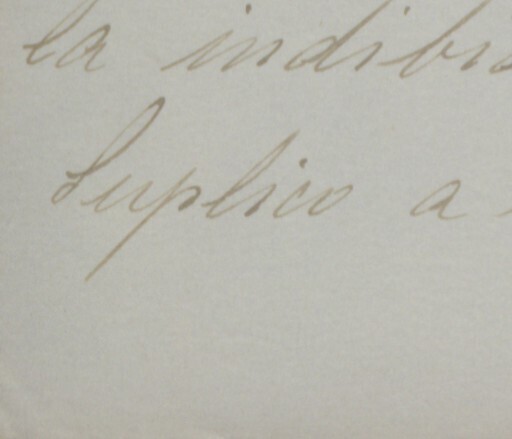 la indibi
Suplico a